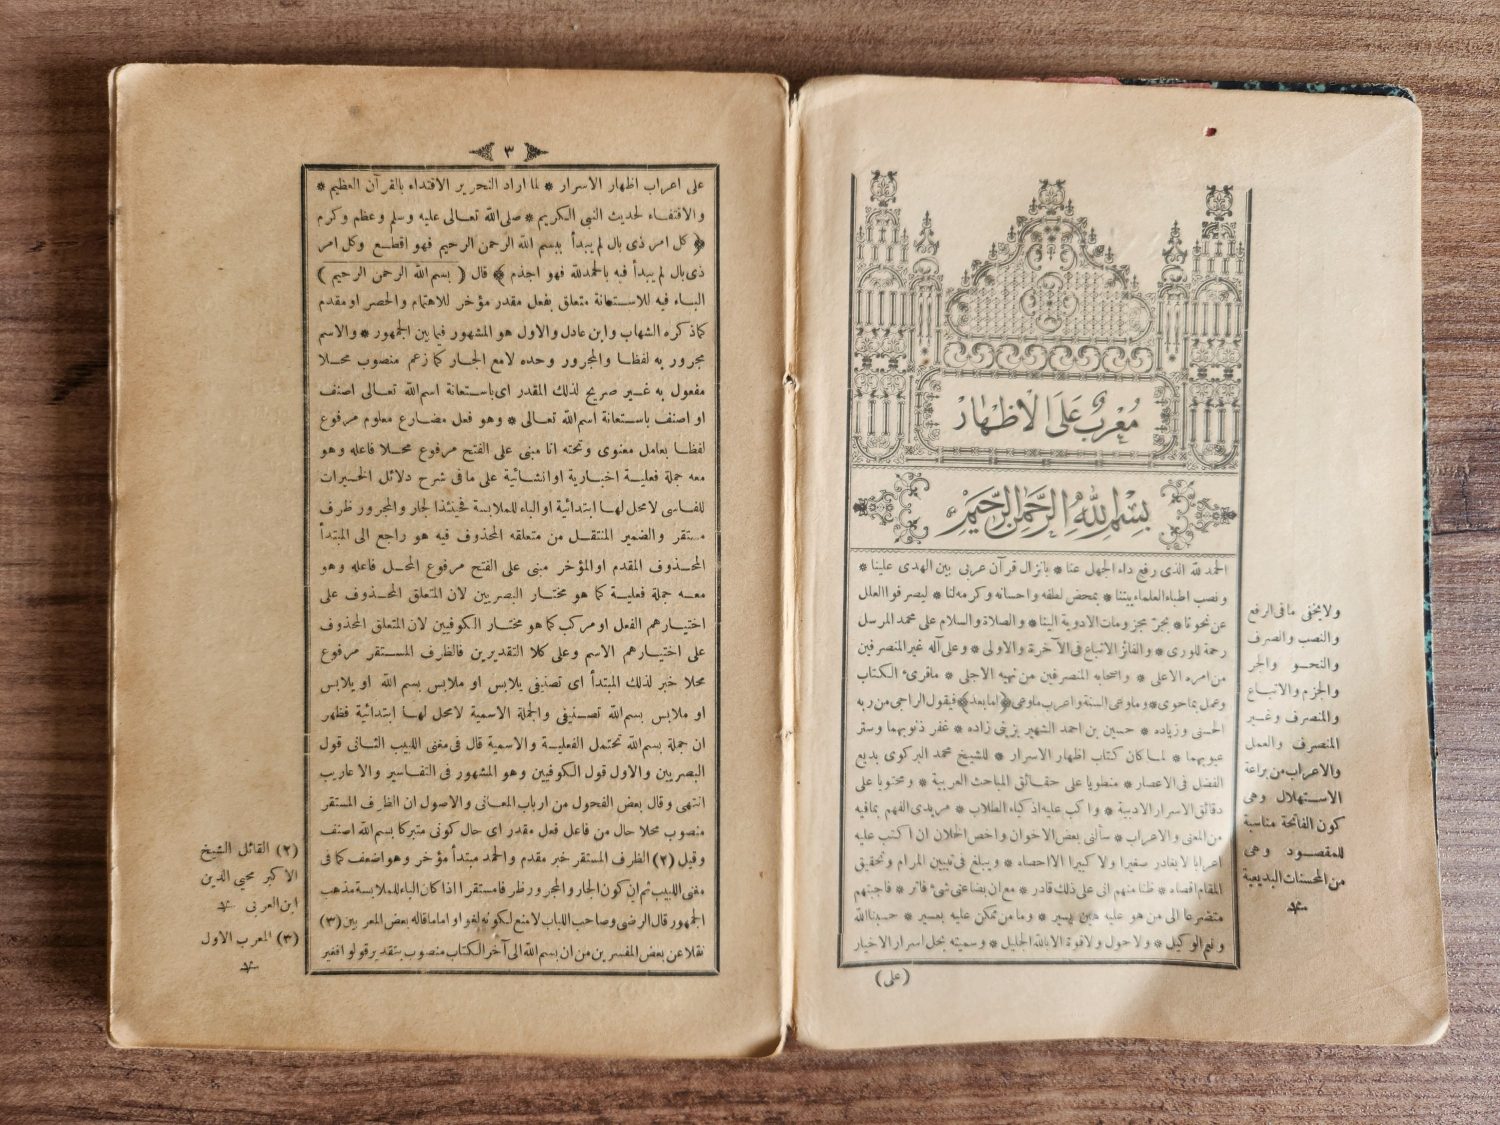 معرب على الاظهار
بسم الله الرحمن الرحيم
الحمد لله الذى رفع داء الجهل عنا * بانزال قرآن عربى بين الهدى علينا *
ونصب اطباء العلماء بيننا * بمحض لطفه واحسانه وكرمه لنا * ليصرفوا العلل
عن نحونا * بجر مجزومات الادوية الينا * والصلاة والسلام على محمد المرسل
رحمة للورى * والفائز الاتباع فى الآخرة والاولى * وعلى آله غير المنصرفين
من امره الاعلى * واصحابه المنصرفين من نهيه الاجلى * ماقرئ الكتاب
وعمل بماحوى * وماوعى السنة واعرب ماوعى ﴿امابعد﴾ فيقول الراجى من ربه
الحسنى وزياده * حسين بن احمد الشهير بزينى زاده * غفر ذنوبهما وستر
عيوبهما * لما كان كتاب اظهار الاسرار * للشيخ محمد البركوى بديع
الفضل فى الاعصار * منطويا على حقائق المباحث العربية * ومحتويا على
دقائق الاسرار الادبية * واكب عليه اذكياء الطلاب * مريدى الفهم بمافيه
من المعنى والاعراب * سألنى بعض الاخوان واخص الخلان ان اكتب عليه
اعرابا لايغادر صغيرا ولا كبيرا الا احصاه * ويبلغ فى تبيين المرام وتحقيق
المقام اقصاه * ظنا منهم انى على ذلك قادر * مع ان بضاعتى شئ فاتر * فاجبتهم
متضرعا الى من هو عليه هين يسير * وما من تمكن عليه بعسير * حسبنا الله
ونعم الوكيل * ولاحول ولاقوة الا بالله الجليل * وسميته بحل اسرار الاخيار
(على)
ولايخفى مافى الرفع
والنصب والصرف
والنحو والجر
والجزم والاتباع
والمنصرف وغير
المنصرف والعمل
والاعراب من براعة
الاستهلال وهى
كون الفاتحة مناسبة
للمقصود وهى
من المحسنات البديعية
٣
على اعراب اظهار الاسرار * لما اراد النحرير الاقتداء بالقرآن العظيم *
والاقتفاء لحديث النبى الكريم * صلى الله تعالى عليه وسلم وعظم وكرم
﴿ كل امر ذى بال لم يبدأ ببسم الله الرحمن الرحيم فهو اقطع وكل امر
ذى بال لم يبدأ فيه بالحمد لله فهو اجذم ﴾ قال ( بسم الله الرحمن الرحيم )
الباء فيه للاستعانة متعلق بفعل مقدر مؤخر للاهتمام والحصر او مقدم
كما ذكره الشهاب وابن عادل والاول هو المشهور فيما بين الجمهور * والاسم
مجرور به لفظا والمجرور وحده لامع الجار كما زعم منصوب محلا
مفعول به غير صريح لذلك المقدر اى باستعانة اسم الله تعالى اصنف
او اصنف باستعانة اسم الله تعالى * وهو فعل مضارع معلوم مرفوع
لفظا بعامل معنوى وتحته انا مبنى على الفتح مرفوع محلا فاعله وهو
معه جملة فعلية اخبارية او انشائية على ما فى شرح دلائل الخيرات
للفاسى لامحل لها ابتدائية او الباء للملابسة فحينئذ الجار والمجرور ظرف
مستقر والضمير المنتقل من متعلقه المحذوف فيه هو راجع الى المبتدأ
المحذوف المقدم او المؤخر مبنى على الفتح مرفوع المحل فاعله وهو
معه جملة فعلية كما هو مختار البصريين لان المتعلق المحذوف على
اختيارهم الفعل او مركب كما هو مختار الكوفيين لان المتعلق المحذوف
على اختيارهم الاسم وعلى كلا التقديرين فالظرف المستقر مرفوع
محلا خبر لذلك المبتدأ اى تصنيفى يلابس او ملابس بسم الله او يلابس
او ملابس بسم الله تصنيفى والجملة الاسمية لامحل لها ابتدائية فظهر
ان جملة بسم الله تحتمل الفعلية والاسمية قال فى مغنى اللبيب الثانى قول
البصريين والاول قول الكوفيين وهو المشهور فى التفاسير والاعاريب
انتهى وقال بعض الفحول من ارباب المعانى والاصول ان الظرف المستقر
منصوب محلا حال من فاعل فعل مقدر اى حال كونى متبركا بسم الله اصنف
وقيل (٢) الظرف المستقر خبر مقدم والحمد مبتدأ مؤخر وهو اضعف كما فى
مغنى اللبيب ثم ان كون الجار والمجرور ظرفا مستقرا اذا كان الباء للملابسة مذهب
الجمهور قال الرضى وصاحب اللباب لامنع لكونه لغوا واما ما قاله بعض المعربين (٣)
نقلا عن بعض المفسرين من ان بسم الله الى آخر الكتاب منصوب بتقدير قولوا فغير
(٢) القائل الشيخ
الاكبر محيى الدين
ابن العربى
(٣) المعرب الاول